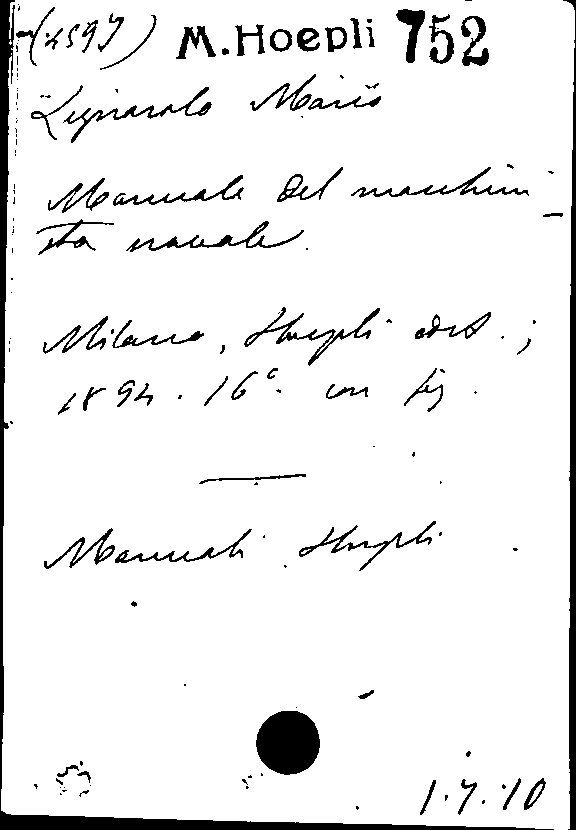 (4597) M. Hoepli 752
Lignarolo Mario
Manuale del macchini-
sta navale.
Milano, Hoepli edit.;
1894. 16°. con fig.
Manuali Hoepli
1.7.10